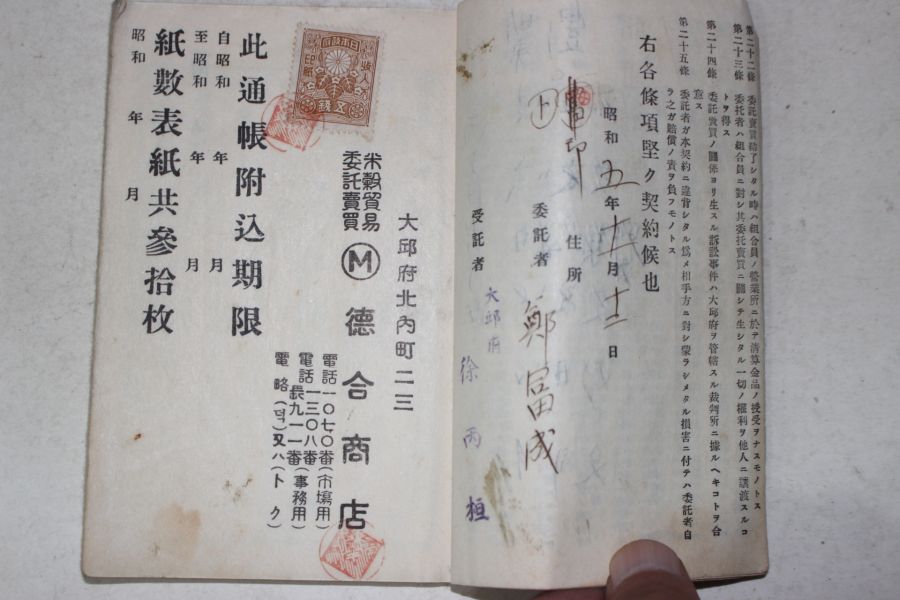 第二十二條 委託賣買結了シタル時ハ組合員ノ營業所ニ於テ淸算金品ノ授受ヲナスモノトス
第二十三條 委託者ハ組合員ニ對シ其委託賣買ニ關シテ生シタル一切ノ權利ヲ他人ニ讓渡スルコ
トヲ得ス
第二十四條 委託賣買ノ關係ヨリ生スル訴訟事件ハ大邱府ヲ管轄スル裁判所ニ據ルヘキコトヲ合
意ス
第二十五條 委託者ガ本契約ニ違背シタル爲メ相手方ニ對シ蒙ラシメタル損害ニ付テハ委託者自
ラ之ガ賠償ノ責ヲ負フモノトス
右各條項堅ク契約候也
昭和五年十一月十三日
住所
委託者 鄭富成
大邱府
受託者 徐丙桓
大邱府北內町二三
米穀貿易
委託賣買
M 德合商店
電話一〇七〇番(市場用)
電話一三〇八番(事務用)
長九一一番
電略(덕)又ハ(トク)
日本政府
收入印紙
五錢
此通帳附込期限
自昭和 年 月
至昭和 年 月
紙數表紙共參拾枚
昭和 年 月